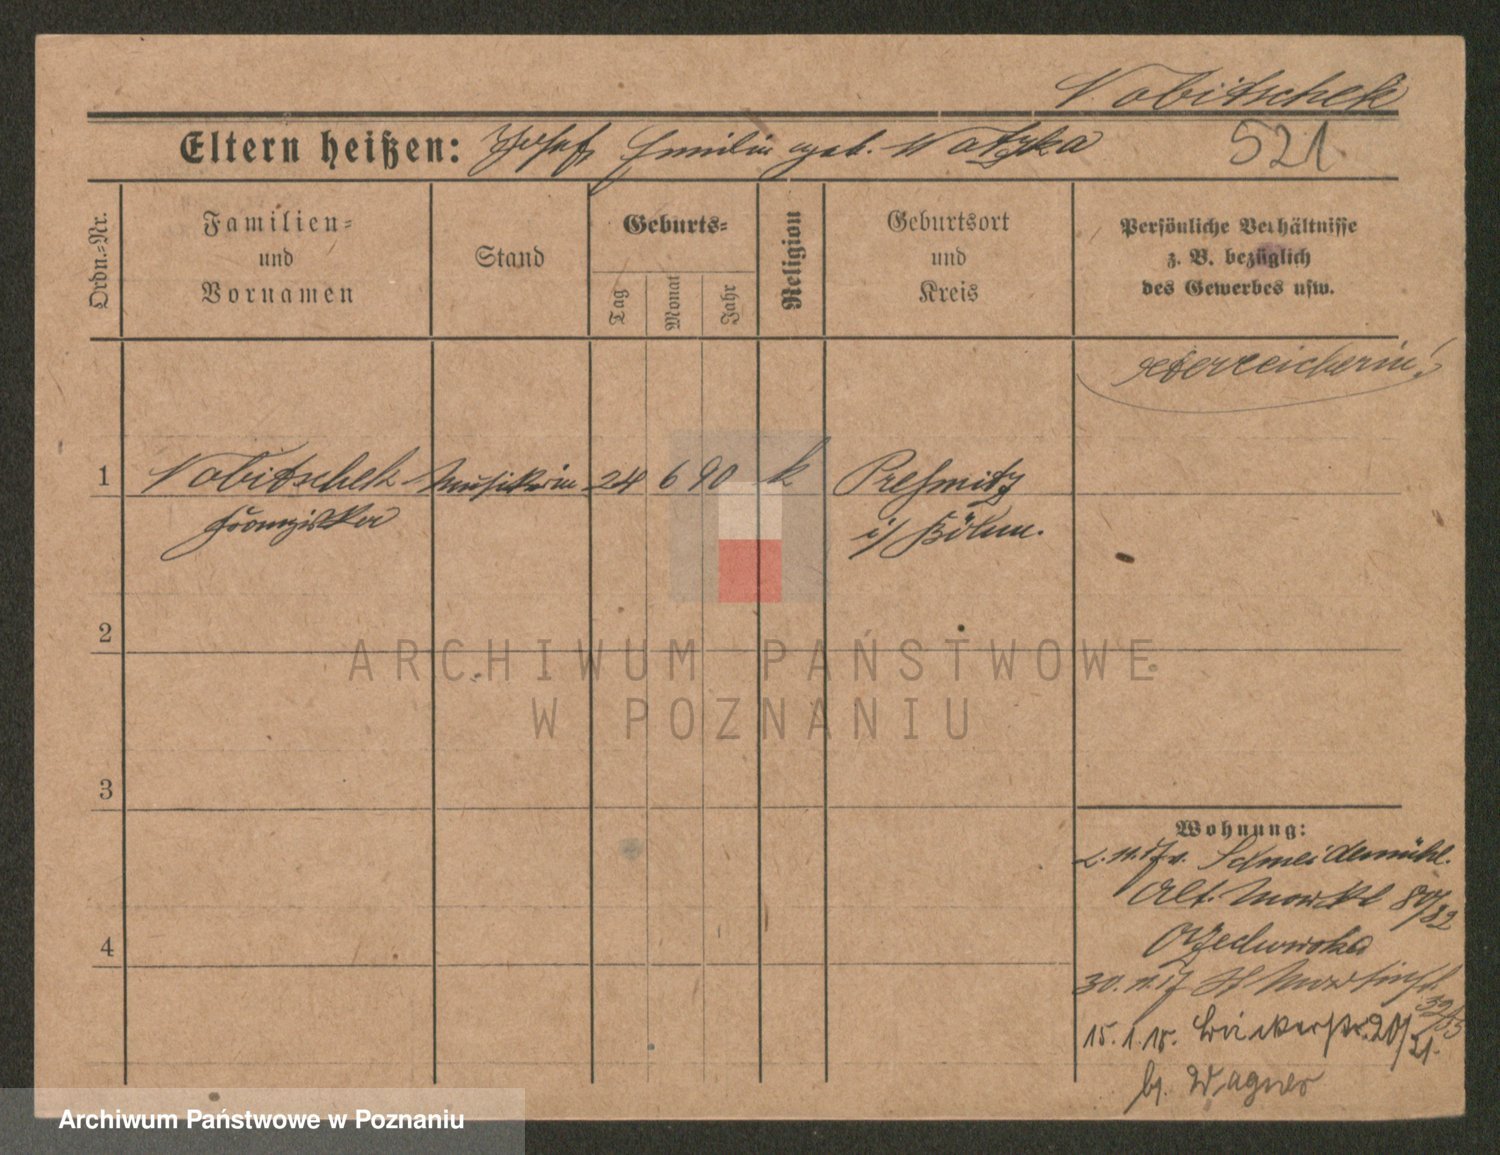 Nobitschek
Eltern heißen: Josef, Emilie geb. Watzka
521
Ordn.=Nr.
Familien=
und
Vornamen
Stand
Geburts=
Tag
Monat
Jahr
Religion
Geburtsort
und
Kreis
Persönliche Verhältnisse
z. B. bezüglich
des Gewerbes usw.
Österreicherin!
1 Nobitschek Musikerin 24 6 90 k Preßnitz
Franziska i/ Böhm.
2
3
4
Wohnung:
2.11.17 v. Schneidemühl.
Alt. Markt 80/82
30.11.17 St Martinstr. 32/33
15.1.18. Bäckerstr. 20/21.
bei Wagner
ARCHIWUM PAŃSTWOWE
W POZNANIU
Archiwum Państwowe w Poznaniu